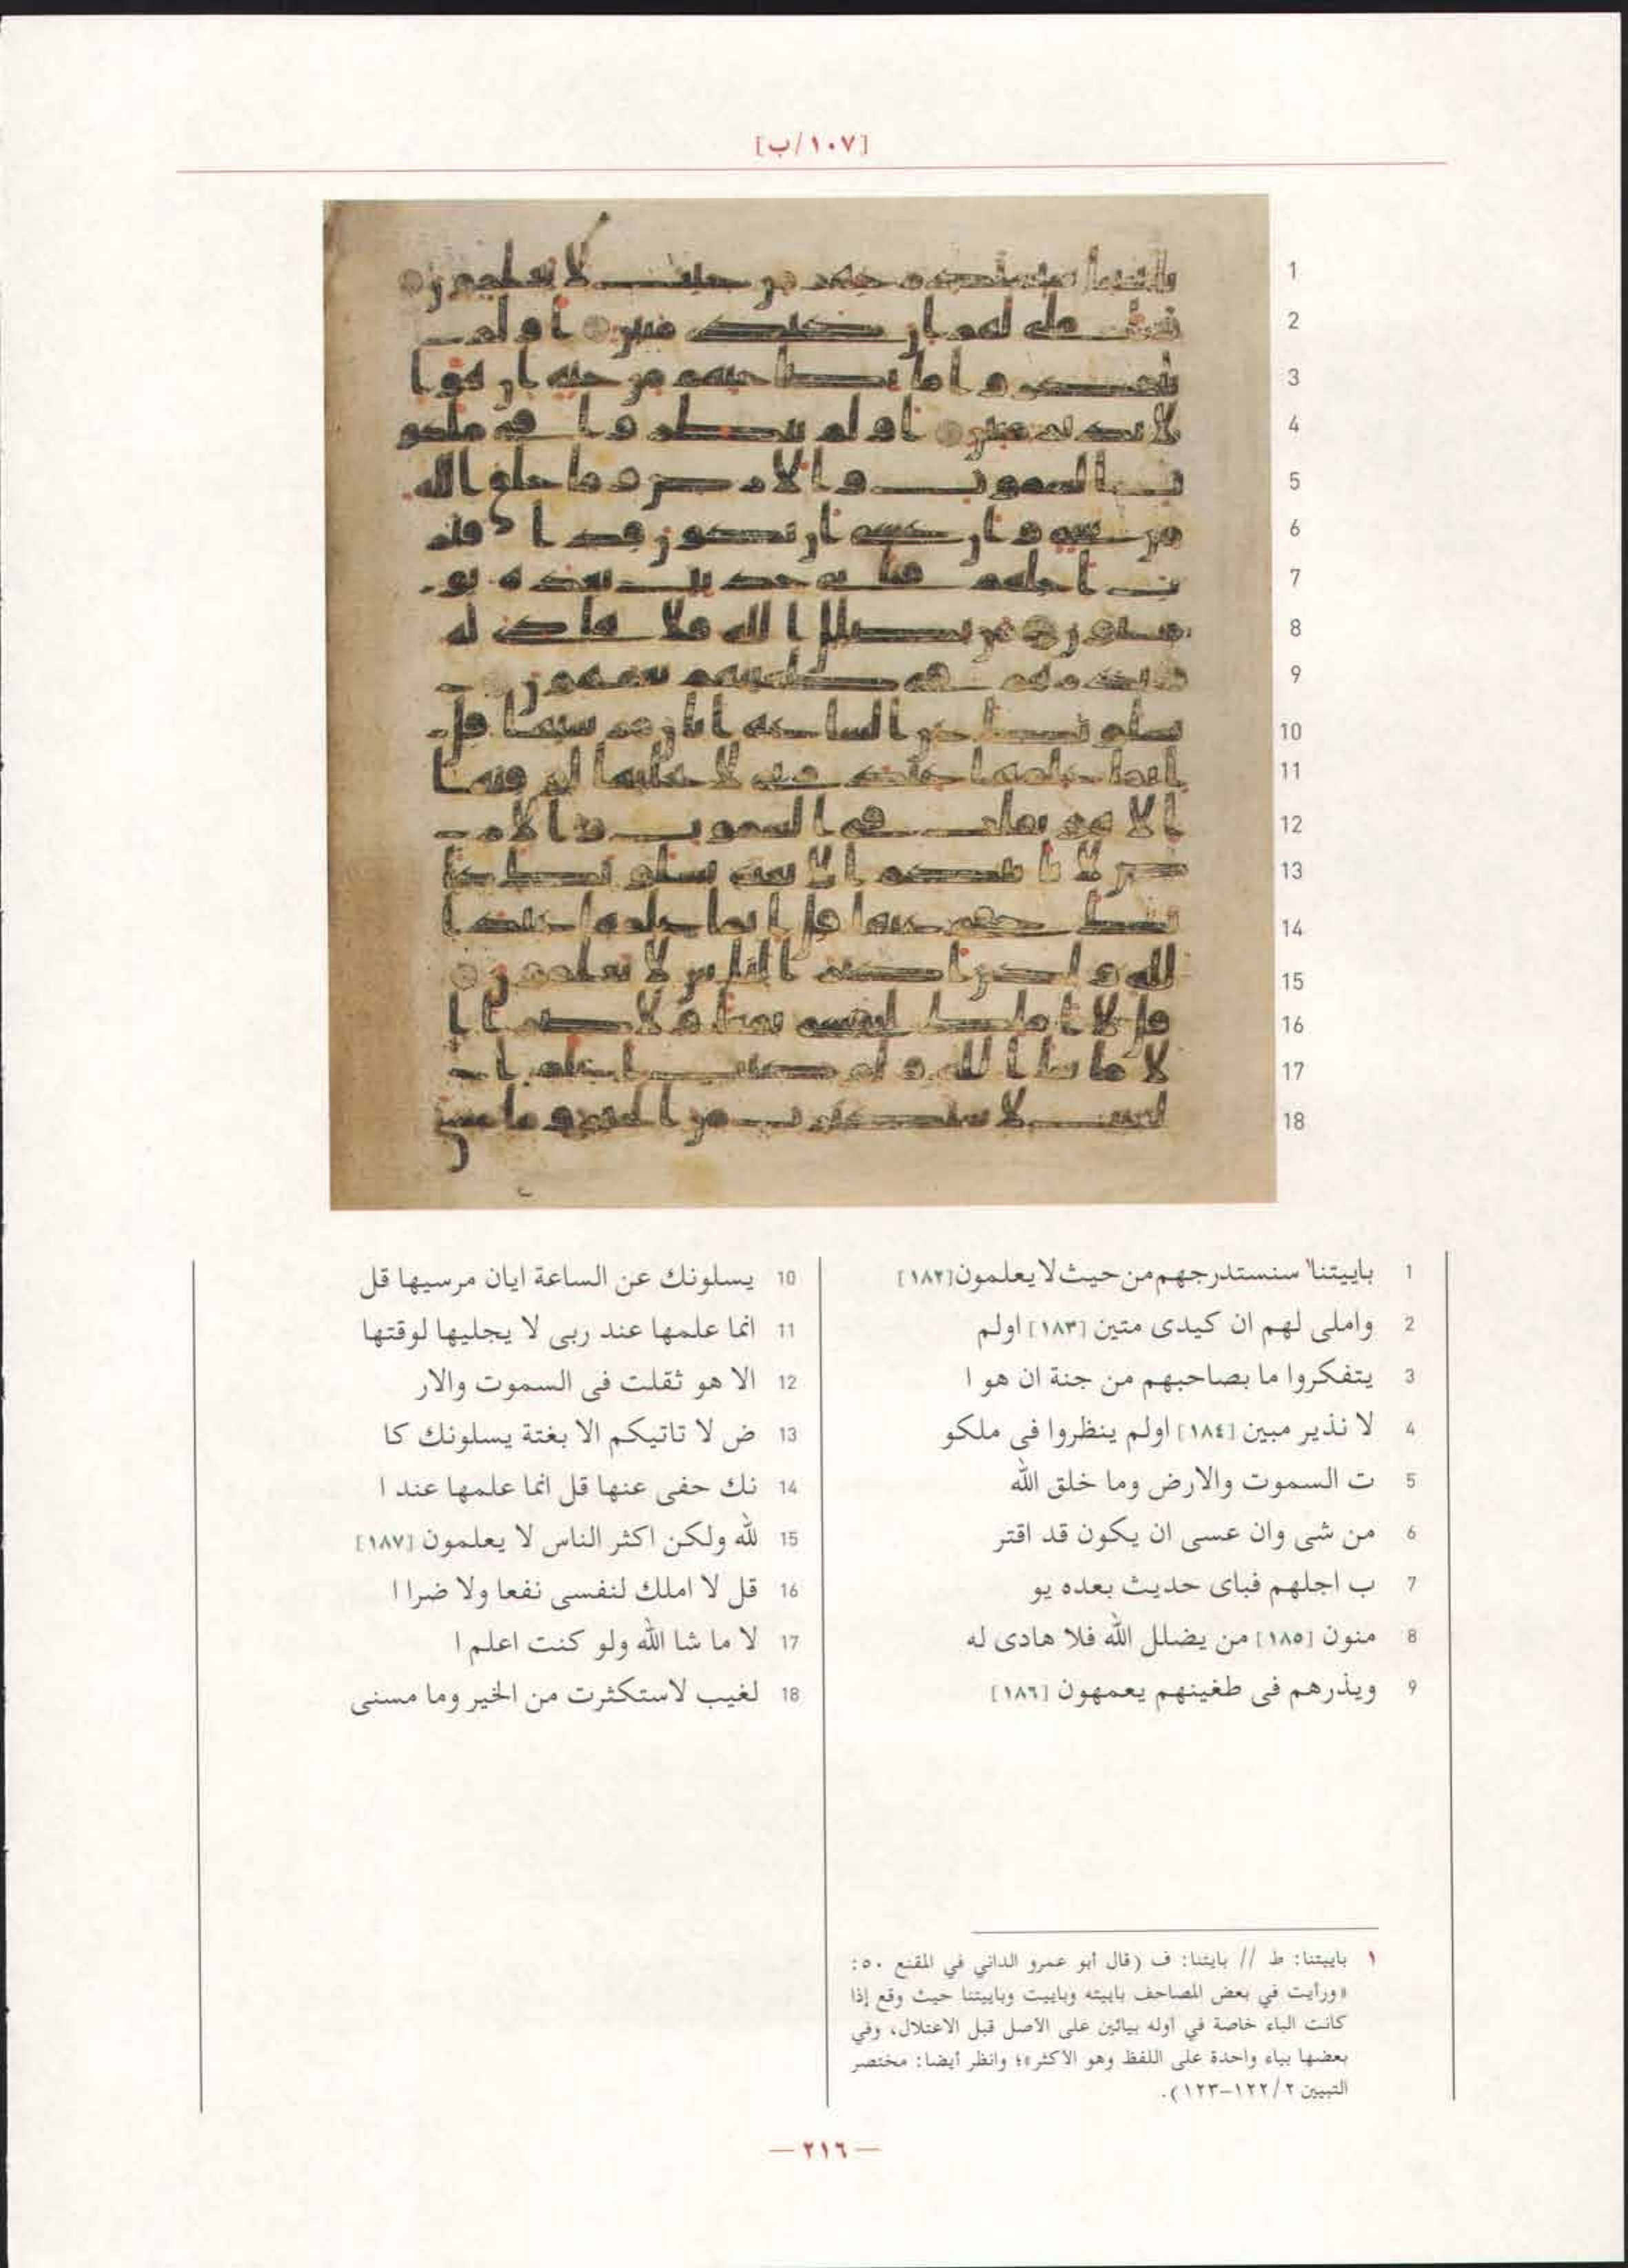 [١٠٧/ب]
1 باييتنا١ سنستدرجهم من حيث لا يعلمون [١٨٢]
2 واملى لهم ان كيدى متين [١٨٣] اولم
3 يتفكروا ما بصاحبهم من جنة ان هو ا
4 لا نذير مبين [١٨٤] اولم ينظروا فى ملكو
5 ت السموت والارض وما خلق الله
6 من شى وان عسى ان يكون قد اقتر
7 ب اجلهم فباى حديث بعده يو
8 منون [١٨٥] من يضلل الله فلا هادى له
9 ويذرهم فى طغينهم يعمهون [١٨٦]
10 يسلونك عن الساعة ايان مرسيها قل
11 انما علمها عند ربى لا يجليها لوقتها
12 الا هو ثقلت فى السموت والار
13 ض لا تاتيكم الا بغتة يسلونك كا
14 نك حفى عنها قل انما علمها عند ا
15 لله ولكن اكثر الناس لا يعلمون [١٨٧]
16 قل لا املك لنفسى نفعا ولا ضرا ا
17 لا ما شا الله ولو كنت اعلم ا
18 لغيب لاستكثرت من الخير وما مسنى
١ باييتنا: ط // بايتنا: ف (قال أبو عمرو الداني في المقنع ٥٠:
«ورأيت في بعض المصاحف باييته وباييت وباييتنا حيث وقع إذا
كانت الباء خاصة في أوله بيائين على الأصل قبل الاعتلال، وفي
بعضها بياء واحدة على اللفظ وهو الأكثر»؛ وانظر أيضا: مختصر
التبيين ٢/ ١٢٢-١٢٣).
— ٢١٦ —